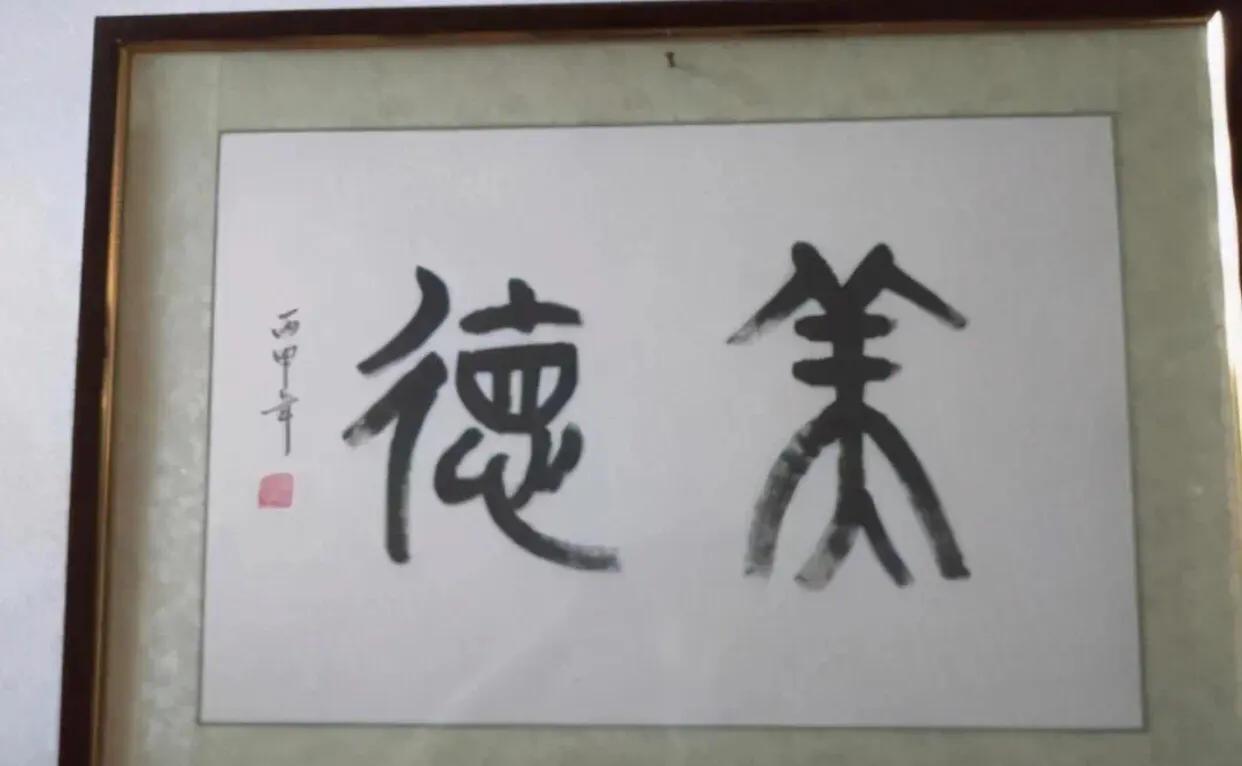 美德
丙甲年